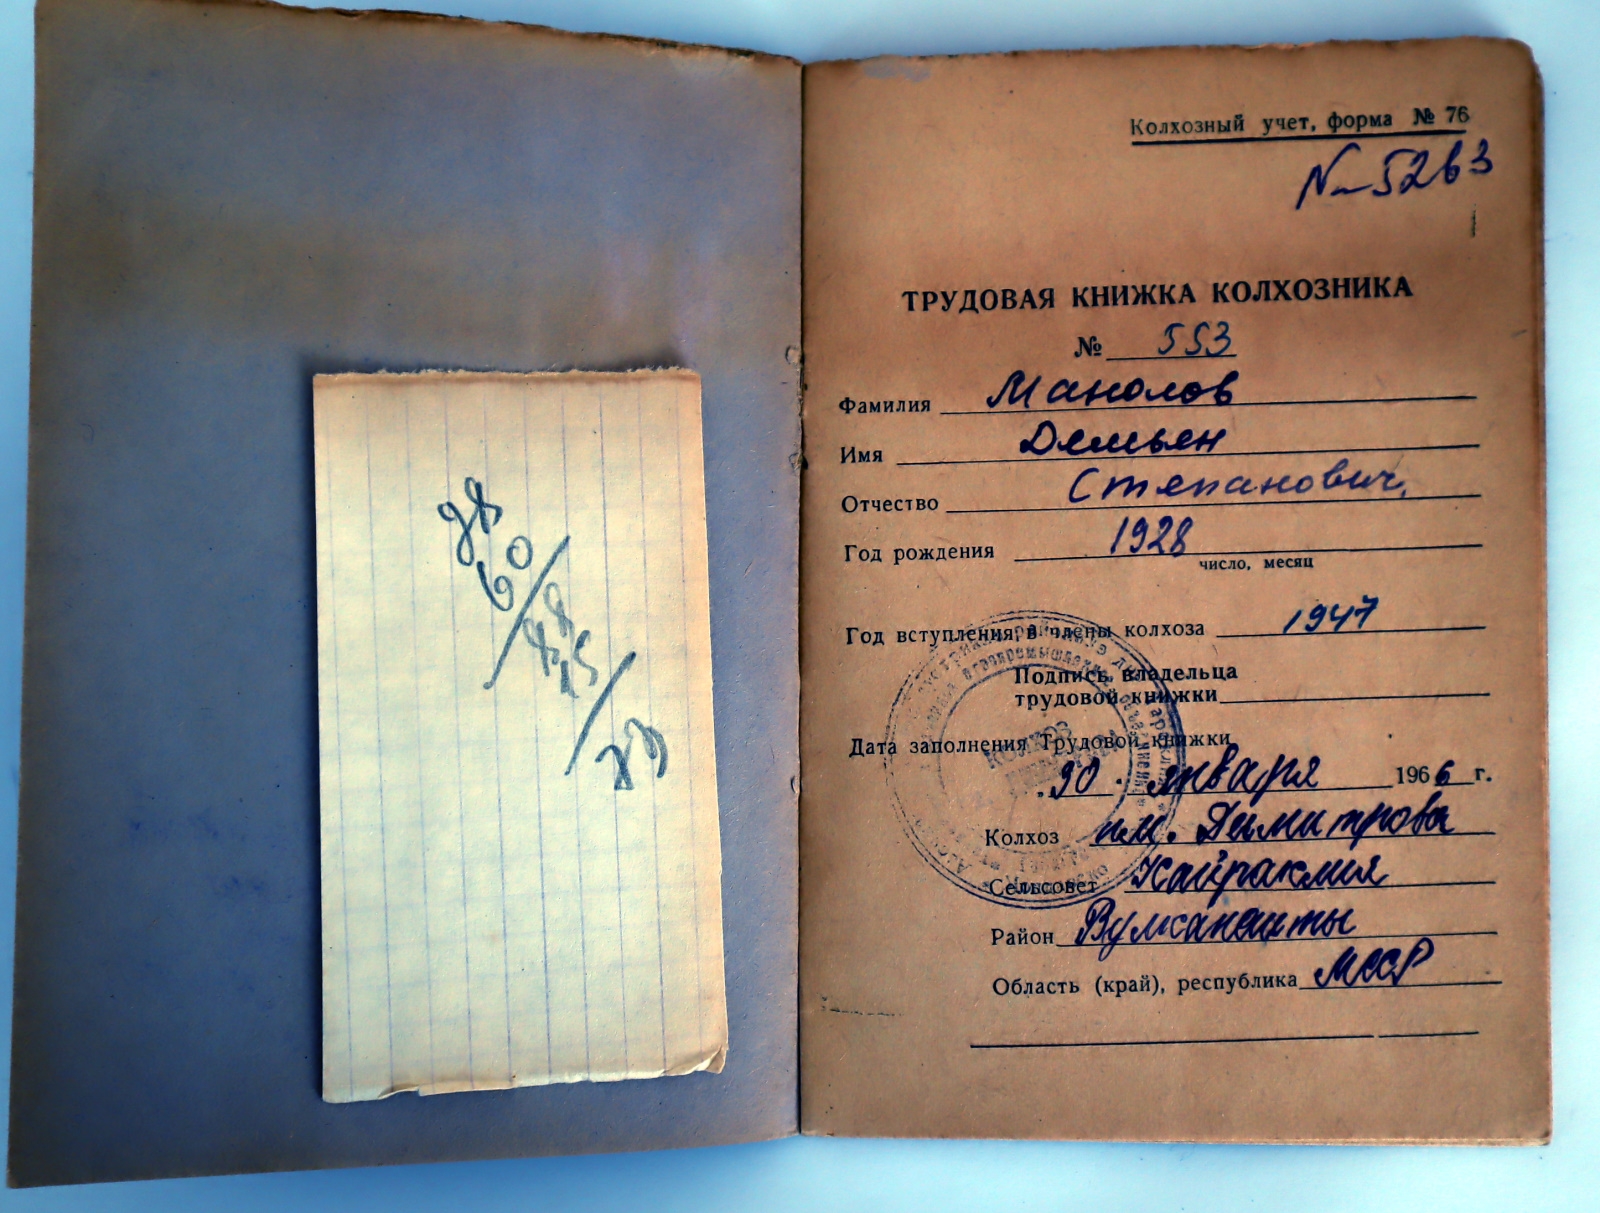 60
Колхозный учет, форма № 76
№ 5263
ТРУДОВАЯ КНИЖКА КОЛХОЗНИКА
№ 553
Фамилия Манолов
Имя Демьян
Отчество Степанович
Год рождения 1928
число, месяц
Год вступления в члены колхоза 1947
Подпись владельца
трудовой книжки
Дата заполнения Трудовой книжки
января 1966 г.
Колхоз им. Димитрова
Сельсовет Кайраклия
Район Вулканешты
Область (край), республика МССР